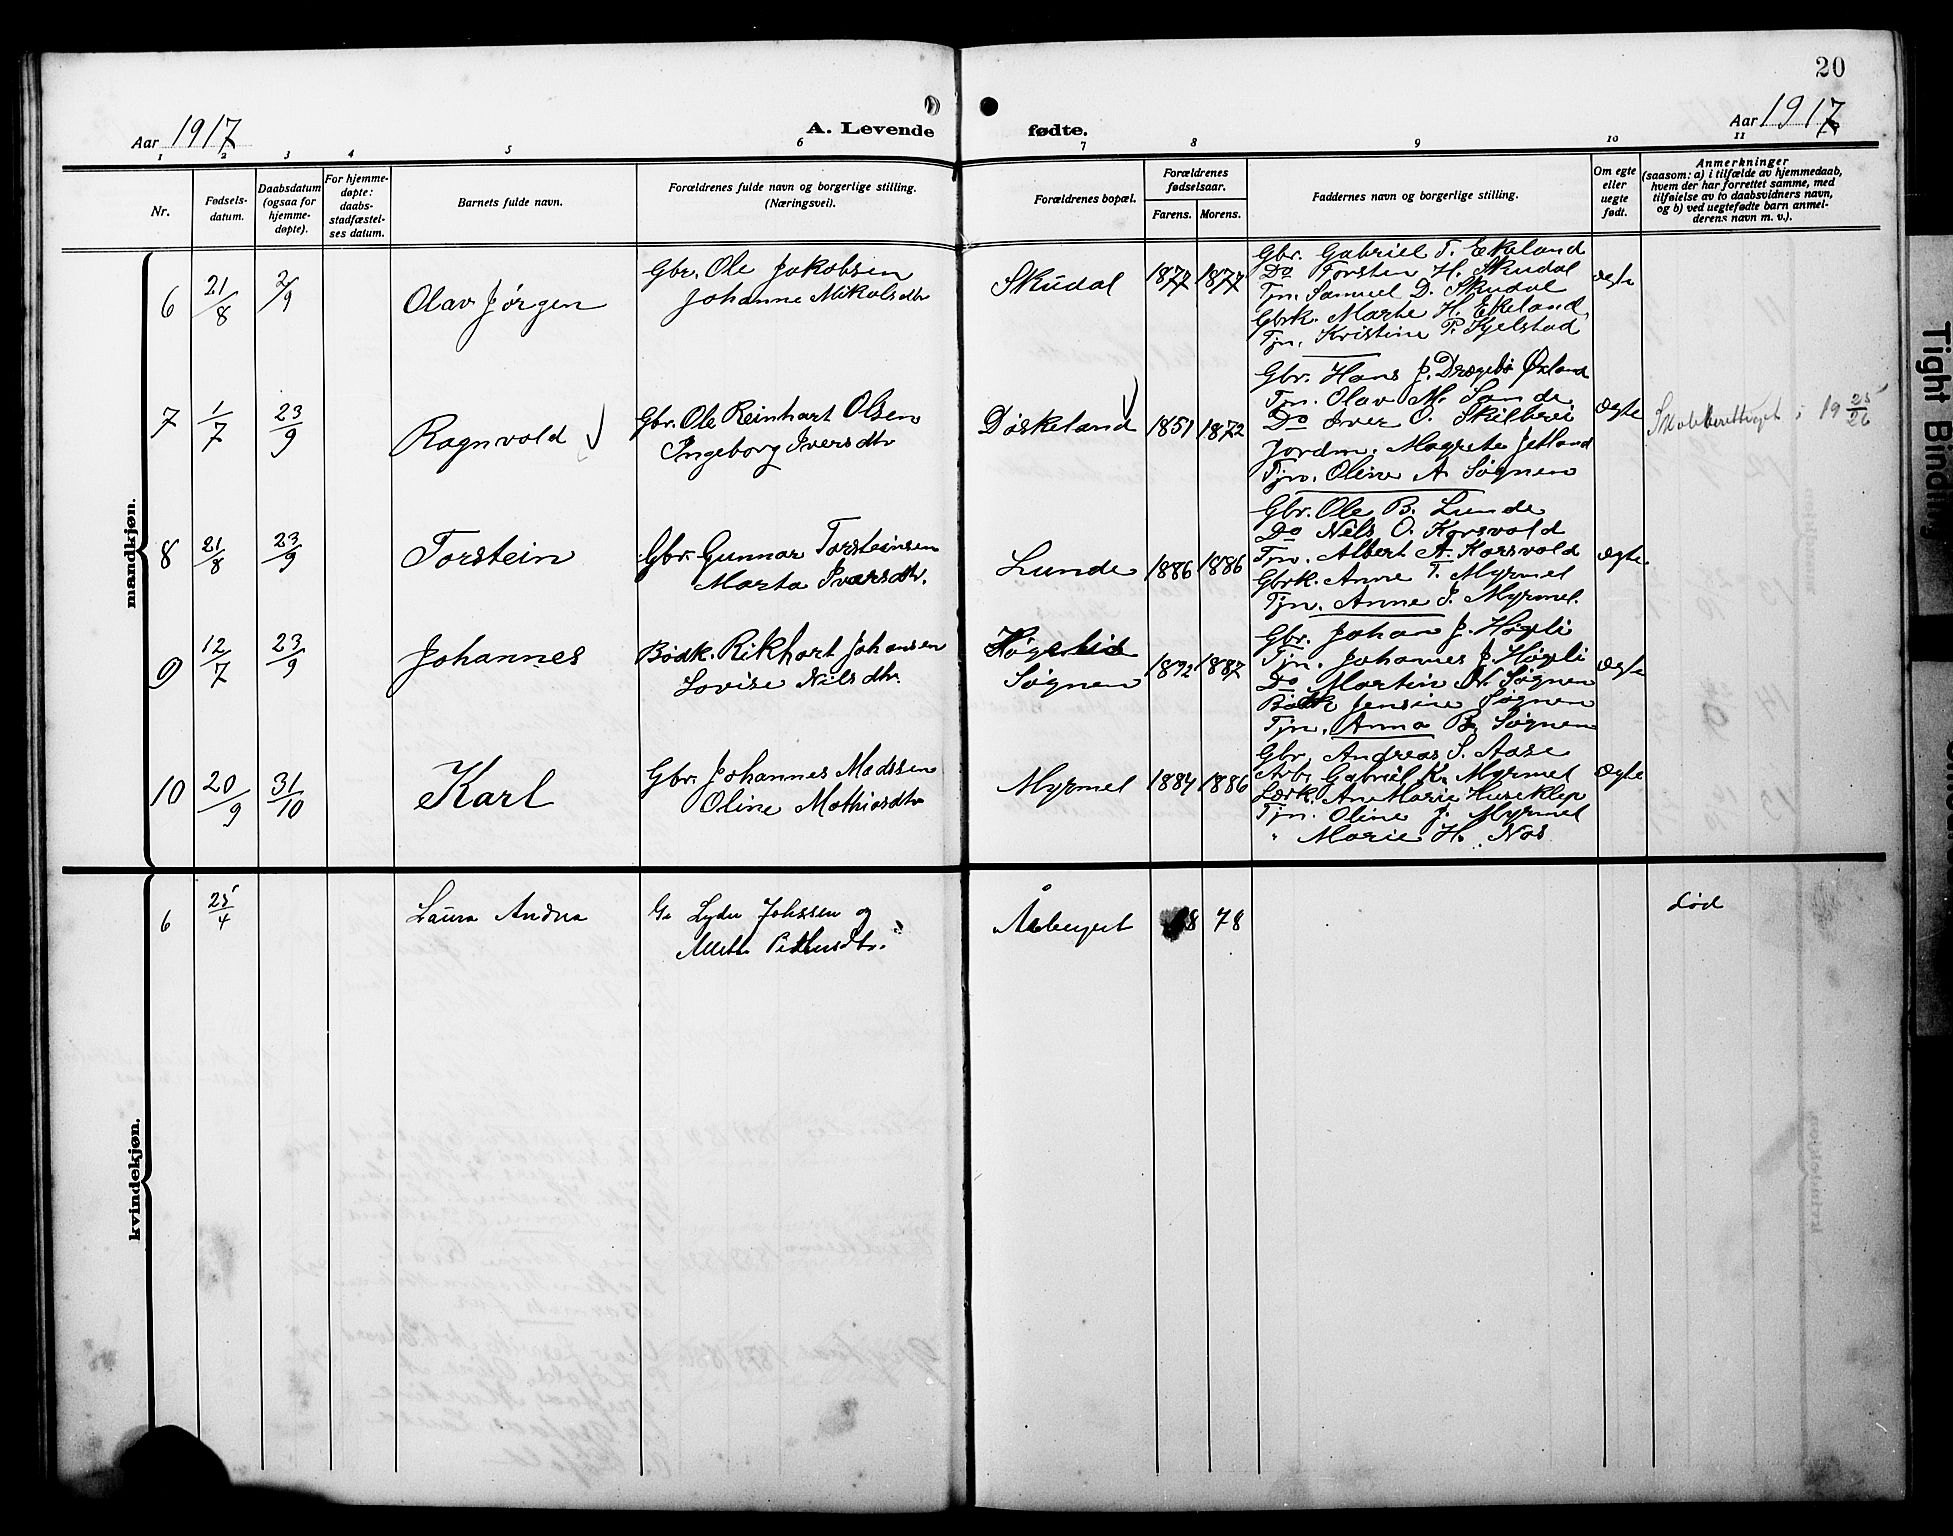 20
Aar 1917
A. Levende fødte.
Aar 1917
1 2 3 4 5 6 7 8 9 10 11
Nr.
Fødsels-
datum.
Daabsdatum
(ogsaa for
hjemme-
døpte).
For hjemme-
døpte:
daabs-
stadfæstel-
ses datum.
Barnets fulde navn.
Forældrenes fulde navn og borgerlige stilling.
(Næringsvei).
Forældrenes bopæl.
Forældrenes
fødselsaar.
Farens. Morens.
Faddernes navn og borgerlige stilling.
Om egte
eller
uegte
født.
Anmerkninger
(saasom: a) i tilfælde av hjemmedaab,
hvem der har forrettet samme, med
tilføielse av to daabsvidners navn,
og b) ved uegtefødte barn anmel-
derens navn m. v.).
mandkjøn.
6 21/8 2/9 Olav Jørgen
Gbr. Ole Jakobsen
Johanne Mikalsdtr
Skudal 1877 1877
Gbr. Gabriel T. Ekeland
Do Torsten H. Skudal
Tjn. Samuel D. Skudal
Gbrk. Marte H. Ekeland
Tjn. Kristine P. Kjelstad
ægte
7 1/7 23/9 Ragnvold
Gbr. Ole Reinhart Olsen
Ingeborg Iversdtr
Døskeland 1851 1872
Gbr. Hans J. Drægebø Øxland
Tjn. Olav M. Sande
Do Iver O. Skilbrei
Jordm. Magrete Jetland
Tjn. Oline A. Søgnen
Ægte
i 19 25/26
8 21/8 23/9 Torstein
Gbr. Gunnar Torsteinsen
Marta Iversdtr.
Lunde 1886 1886
Gbr. Ole B. Lunde
Do Nils O. Korsvold
Tjn. Albert A. Korsvold
Gbrk. Anne T. Myrmel
Tjn. Anne I. Myrmel.
Ægte.
9 12/7 23/9 Johannes
Bødk. Rikhart Johansen
Lovise Nilsdtr.
Søgnen 1892 1887
Gbr. Johan J. Høgli
Tjn. Johannes J. Høgli
Do Martin N. Søgnen
Bødk Jensine Søgnen
Tjn. Anna B. Søgnen
Ægte
10 20/9 31/10 Karl
Gbr. Johannes Madssen
Oline Mathiasdtr
Myrmel 1884 1886
Gbr. Andreas S. Aase
Arb. Gabriel K. Myrmel
Lærk. AnMarie Huseklep
Tjn. Oline J. Myrmel
" Marie H. Nos
Ægte
kvindekjøn.
6 25/4 Laura Andrea
Lyder Johssen og
78
død
Tight Binding